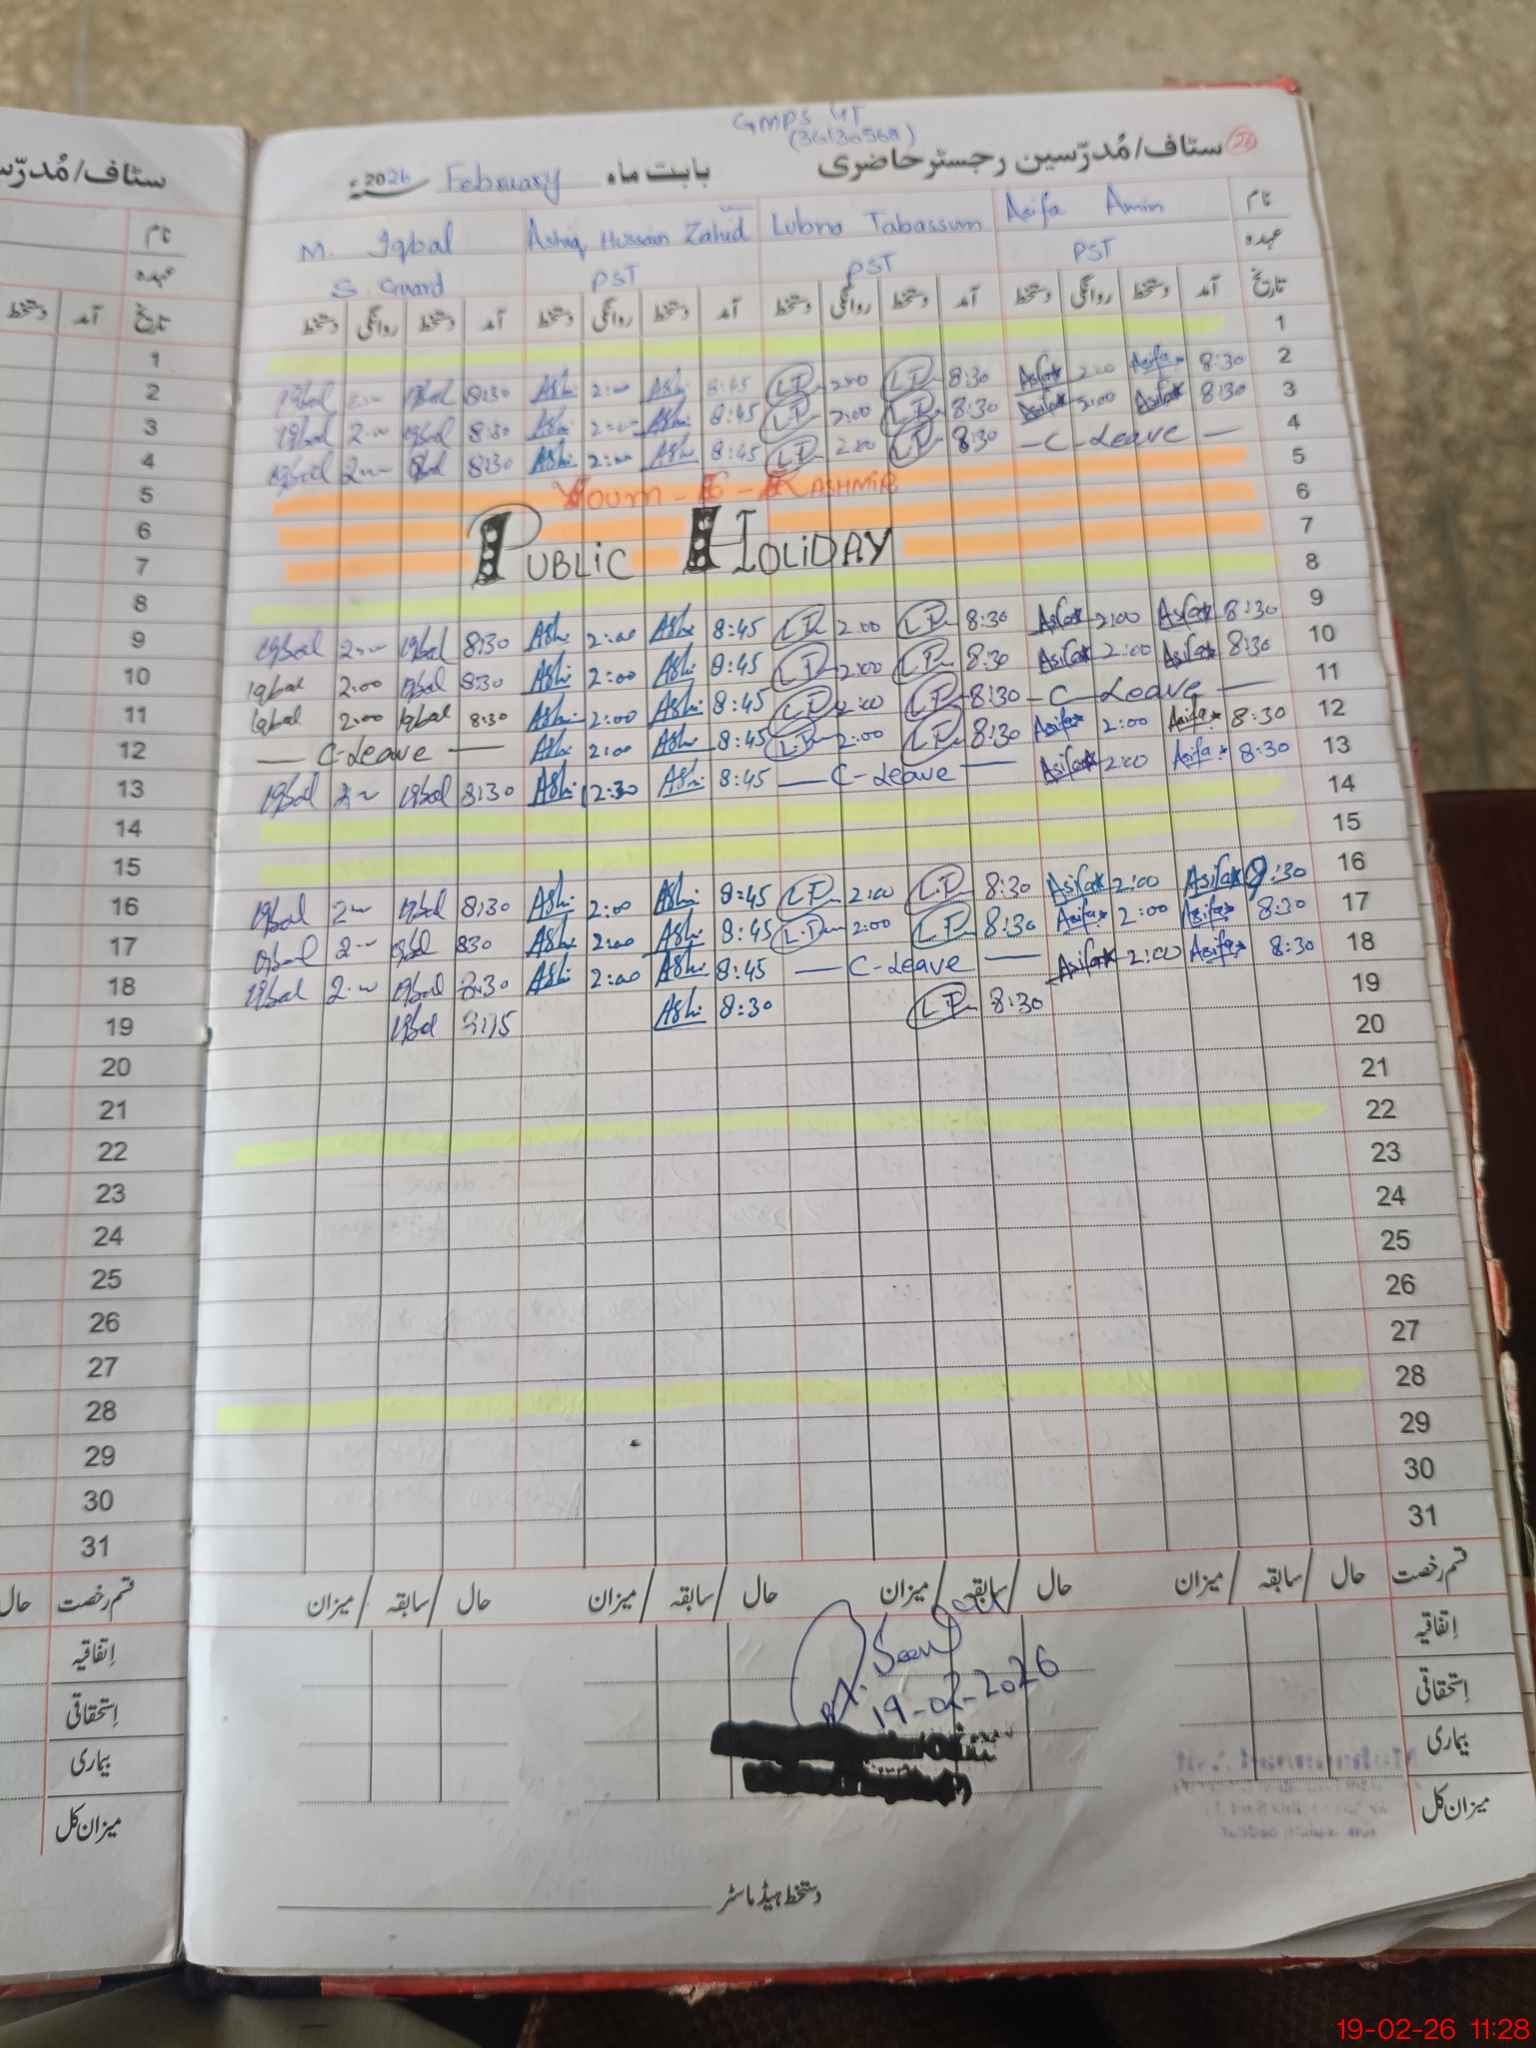 GMPS
ستاف/مُدرّسین رجسٹر حاضری بابت ماہ February 2026ء
نام Asifa Amin Lubna Tabassum Ashiq Hussain Zahid M. Iqbal
عہدہ PST PST PST S Guard
تاریخ آمد دستخط روانگی دستخط آمد دستخط روانگی دستخط آمد دستخط روانگی دستخط آمد دستخط روانگی دستخط
1
2 8:30 Asifa 2:00 Asifa 8:30 L.T 2:00 L.T 8:45 Ashi 2:00 Ashi 8:30 Iqbal Iqbal
3 8:30 Asifa 2:00 Asifa 8:30 L.T 2:00 L.T 8:45 Ashi 2:00 Ashi 8:30 Iqbal 2:00 Iqbal
4 — C-Leave — 8:30 L.T 2:00 L.T 8:45 Ashi 2:00 Ashi 8:30 Iqbal 2:00 Iqbal
5 Youm-E-Kashmir
6
7 Public Holiday
8
9 8:30 Asifa 2:00 Asifa 8:30 L.T 2:00 L.T 8:45 Ashi 2:00 Ashi 8:30 Iqbal 2:00 Iqbal
10 8:30 Asifa 2:00 Asifa 8:30 L.T 2:00 L.T 8:45 Ashi 2:00 Ashi 8:30 Iqbal 2:00 Iqbal
11 — C-Leave — 8:30 L.T 2:00 L.T 8:45 Ashi 2:00 Ashi 8:30 Iqbal 2:00 Iqbal
12 8:30 Asifa 2:00 Asifa 8:30 L.T 2:00 L.T 8:45 Ashi 2:00 Ashi — C-Leave —
13 8:30 Asifa 2:00 Asifa — C-Leave — 8:45 Ashi 12:30 Ashi 8:30 Iqbal 2:00 Iqbal
14
15
16 8:30 Asifa 2:00 Asifa 8:30 L.T 2:00 L.T 8:45 Ashi 2:00 Ashi 8:30 Iqbal 2:00 Iqbal
17 8:30 Asifa 2:00 Asifa 8:30 L.T 2:00 L.T 8:45 Ashi 2:00 Ashi 830 Iqbal 2:00 Iqbal
18 8:30 Asifa 2:00 Asifa — C-Leave — 8:45 Ashi 2:00 Ashi 8:30 Iqbal 2:00 Iqbal
19 8:30 L.T 8:30 Ashi Iqbal
20
21
22
23
24
25
26
27
28
29
30
31
قسم رخصت حال / سابقہ / میزان حال / سابقہ / میزان حال / سابقہ / میزان حال / سابقہ / میزان
اِتفاقیہ
اِستحقاقی
بیماری
میزان کل
Seen
19-02-2026
دستخط ہیڈ ماسٹر
ستاف/مُدرّسین
نام
عہدہ
تاریخ آمد دستخط
1
2
3
4
5
6
7
8
9
10
11
12
13
14
15
16
17
18
19
20
21
22
23
24
25
26
27
28
29
30
31
قسم رخصت حال
اِتفاقیہ
اِستحقاقی
بیماری
میزان کل
19-02-26 11:28